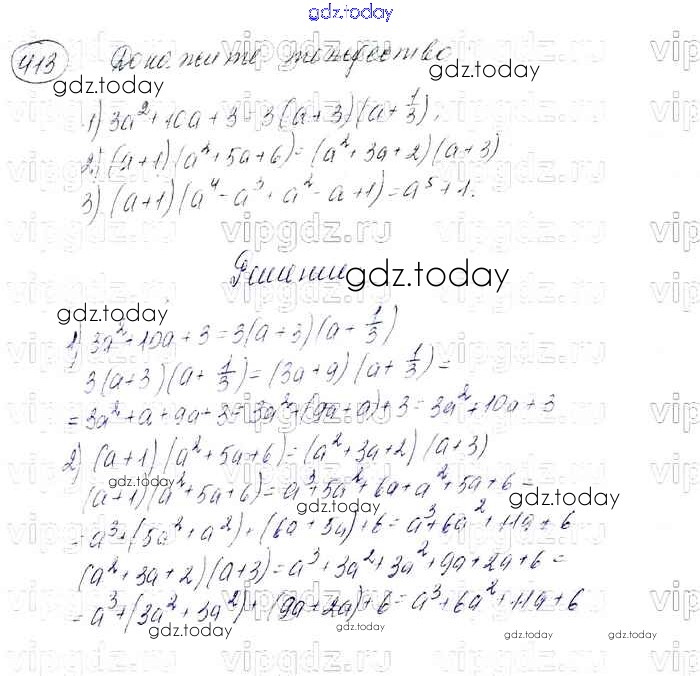 gdz.today
413 Докажите тождество
gdz.today
gdz.today
1) 3a² + 10a + 3 = 3(a+3)(a+1/3);
2) (a+1)(a²+5a+6) = (a²+3a+2)(a+3)
3) (a+1)(a⁴-a³+a²-a+1) = a⁵+1.
vipgdz.ru
Решение
gdz.today
gdz.today
1) 3a²+10a+3 = 3(a+3)(a+1/3)
3(a+3)(a+1/3) = (3a+9)(a+1/3) =
= 3a²+a+9a+3 = 3a²+(9a+a)+3 = 3a²+10a+3
2) (a+1)(a²+5a+6) = (a²+3a+2)(a+3)
gdz.today
(a+1)(a²+5a+6) = a³+5a²+6a+a²+5a+6 =
gdz.today
gdz.today
= a³+(5a²+a²)+(6a+5a)+6 = a³+6a²+11a+6
(a²+3a+2)(a+3) = a³+3a²+3a²+9a+2a+6 =
= a³+(3a²+3a²)+(9a+2a)+6 = a³+6a²+11a+6
gdz.today
gdz.today
gdz.today
gdz.today
vipgdz.ru